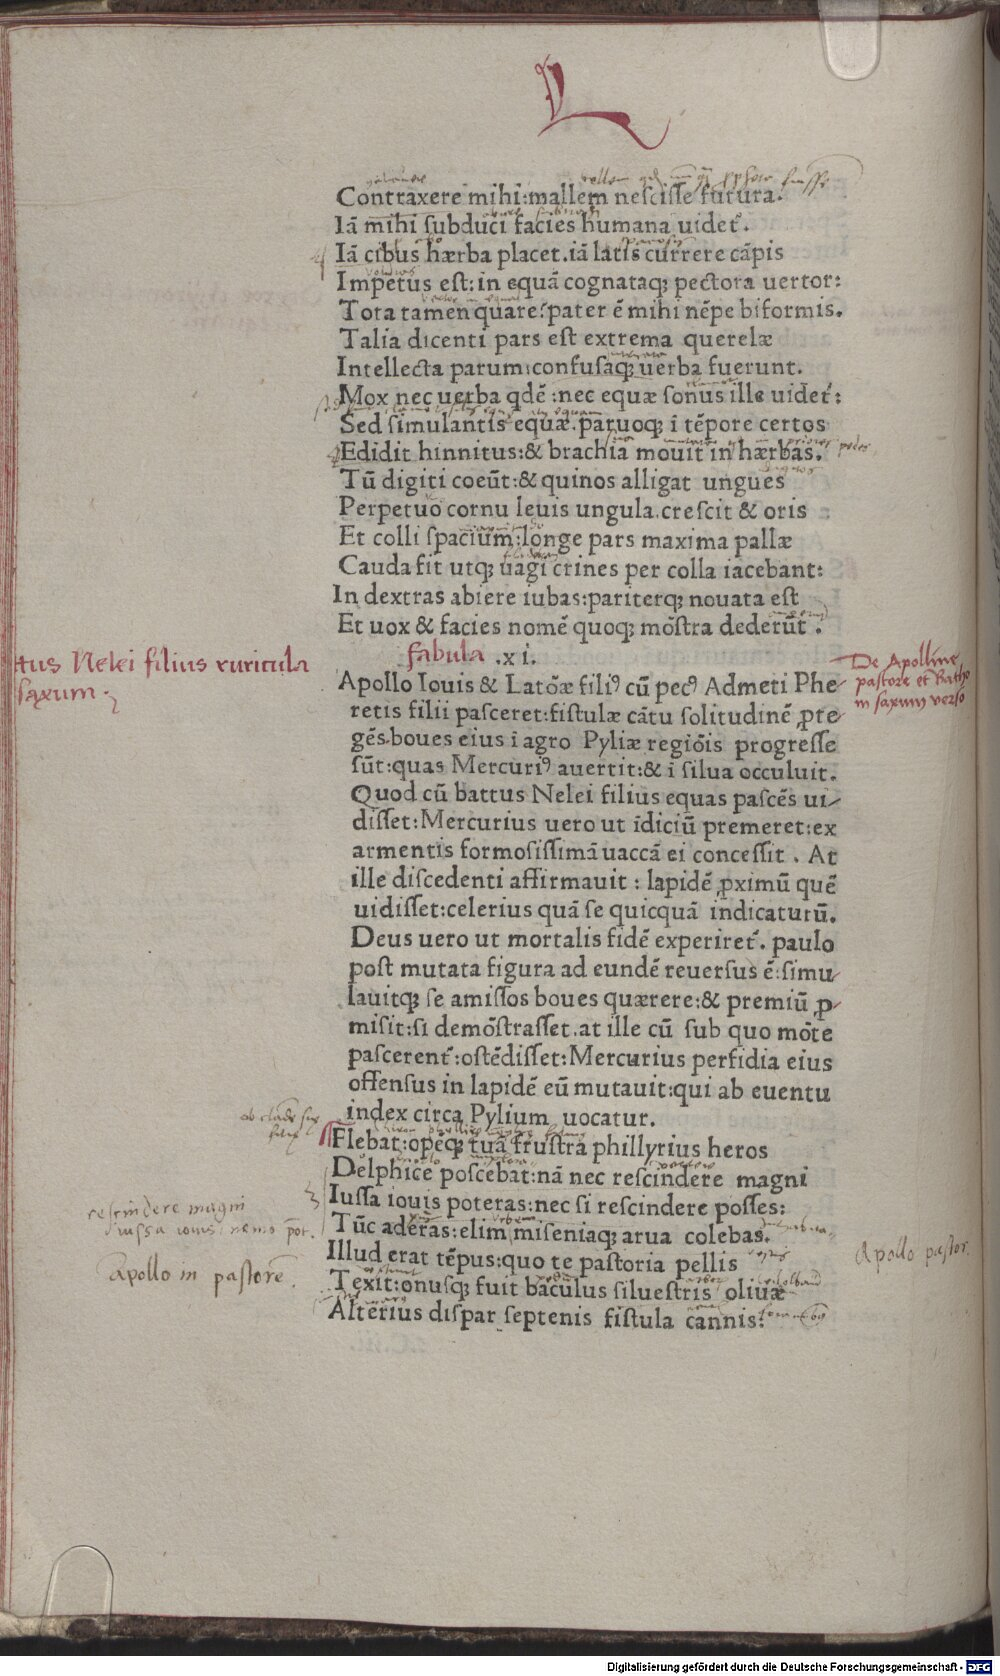 L
Contraxere mihi:mallem nesciſſe futura.
Iā mihi ſubduci facies humana uidet᷑.
Iā cibus hærba placet.iā latis currere cāpis
Impetus eſt:in equā cognataqꝫ pectora uertor:
Tota tamen quare?pater ē mihi nēpe biformis.
Talia dicenti pars eſt extrema querelæ
Intellecta parum:confuſaqꝫ uerba fuerunt.
Mox nec uerba qdē:nec equæ ſonus ille uidet᷑:
Sed ſimulantis equæ.paruoqꝫ ī tēpore certos
Edidit hinnitus:& brachia mouit in hærbas.
Tū digiti coeūt:& quinos alligat ungues
Perpetuo cornu leuis ungula.creſcit & oris
Et colli ſpacium:longe pars maxima pallæ
Cauda fit utqꝫ uagi crines per colla iacebant:
In dextras abiere iubas:pariterqꝫ nouata eſt
Et uox & facies nomē quoqꝫ mōſtra dederūt.
fabula .xi.
tus Nelei filius ruricula
saxum.
De Apolline
pastore et Batho
in saxum verso
Apollo Iouis & Latōæ filiꝰ cū pecꝰ Admeti Phe
retis filii paſceret:fiſtulæ cātu ſolitudinē ꝓte
gēs.boues eius ī agro Pyliæ regiōis progreſſe
ſūt:quas Mercuriꝰ auertit:& ī ſilua occuluit.
Quod cū battus Nelei filius equas paſcēs ui
diſſet:Mercurius uero ut īdiciū premeret:ex
armentis formoſiſſimā uaccā ei conceſſit. At
ille diſcedenti affirmauit:lapidē ꝓximū quē
uidiſſet:celerius quā ſe quicquā indicaturū.
Deus uero ut mortalis fidē experiret᷑. paulo
poſt mutata figura ad eundē reuerſus ē:ſimu
lauitqꝫ ſe amiſſos boues quærere:& premiū ꝓ
miſit:ſi demōſtraſſet.at ille cū ſub quo mōte
paſcerent᷑:oſtēdiſſet:Mercurius perfidia eius
offenſus in lapidē eū mutauit:qui ab euentu
index circa Pylium uocatur.
Flebat:opēqꝫ tuā fruſtra phillyrius heros
Delphice poſcebat:nā nec reſcindere magni
Iuſſa iouis poteras:nec ſi reſcindere poſſes:
Tūc aderas:elim miſeniaqꝫ arua colebas.
Illud erat tēpus:quo te paſtoria pellis
Texit:onuſqꝫ fuit baculus ſilueſtris oliuæ
Alterius diſpar ſeptenis fiſtula cannis:
rescindere magni
iussa iouis nemo pot.
Apollo in pastorē.
Apollo pastor.
Digitalisierung gefördert durch die Deutsche Forschungsgemeinschaft - DFG